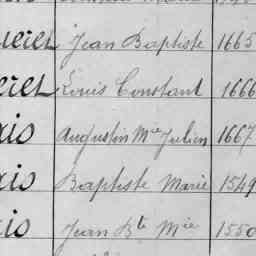 ueret Jean Baptiste 1665
eret Louis Constant 1666
is Augustin Mie Julien 1667
is Baptiste Marie 1549
is Jean Bte Mie 1550